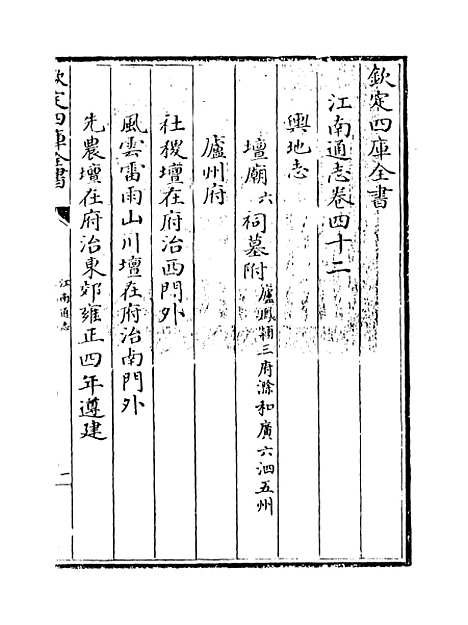 欽定四庫全書
江南通志卷四十二
輿地志
壇廟六祠墓附廬鳳潁三府滁和廣六泗五州
廬州府
社稷壇在府治西門外
風雲雷雨山川壇在府治南門外
先農壇在府治東郊雍正四年遵建
欽定四庫全書
江南通志
一